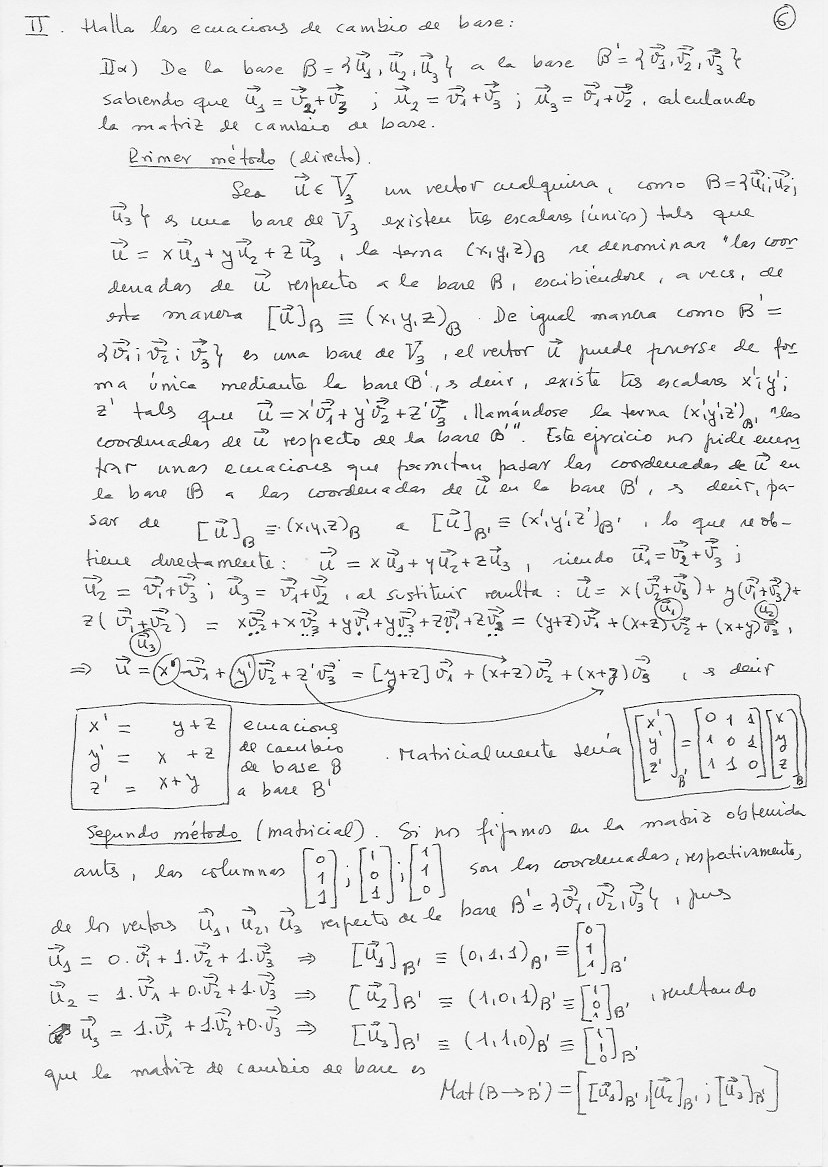 II. Halla las ecuacions de cambio de base: 6
IIα) De la base B = {u⃗₁, u⃗₂, u⃗₃} a la base B' = {v⃗₁, v⃗₂, v⃗₃}
sabiendo que u⃗₁ = v⃗₂+v⃗₃ ; u⃗₂ = v⃗₁+v⃗₃ ; u⃗₃ = v⃗₁+v⃗₂, calculando
la matriz de cambio de base.
Primer método (directo).
Sea u⃗ ∈ V₃ un vector cualquiera, como B = {u⃗₁; u⃗₂;
u⃗₃} es una base de V₃ existen tres escalares (únicos) tals que
u⃗ = x u⃗₁ + y u⃗₂ + z u⃗₃, la terna (x,y,z)_B se denominan "las coor
denadas de u⃗ respecto a la base B, escribiéndose, a vecs, de
esta manera [u⃗]_B ≡ (x,y,z)_B. De igual manera como B' =
{v⃗₁; v⃗₂; v⃗₃} es una base de V₃, el vector u⃗ puede ponerse de for
ma única mediante la base B', es decir, existe tres escalares x'; y';
z' tals que u⃗ = x'v⃗₁ + y'v⃗₂ + z'v⃗₃, llamándose la terna (x',y',z')_B' "las
coordenadas de u⃗ respecto de la base B'". Este ejercicio nos pide encon
trar unas ecuacions que permitan pasar las coordenadas de u⃗ en
la base B a las coordenadas de u⃗ en la base B', es decir, pa-
sar de [u⃗]_B ≡ (x,y,z)_B a [u⃗]_B' ≡ (x',y',z')_B', lo que se ob-
tiene directamente: u⃗ = x u⃗₁ + y u⃗₂ + z u⃗₃, siendo u⃗₁ = v⃗₂+v⃗₃ ;
u⃗₂ = v⃗₁+v⃗₃ ; u⃗₃ = v⃗₁+v⃗₂, al sustituir resulta: u⃗ = x(v⃗₂+v⃗₃) + y(v⃗₁+v⃗₃)+
(u⃗₁) (u⃗₂)
z(v⃗₁+v⃗₂) = xv⃗₂+xv⃗₃+yv⃗₁+yv⃗₃+zv⃗₁+zv⃗₂ = (y+z)v⃗₁ + (x+z)v⃗₂ + (x+y)v⃗₃,
(u⃗₃)
⇒ u⃗ = x'v⃗₁ + y'v⃗₂ + z'v⃗₃ = [y+z]v⃗₁ + (x+z)v⃗₂ + (x+y)v⃗₃, es decir
x' = y+z
y' = x +z
z' = x+y
ecuacions
de cambio
de base B
a base B'
. Matricialmente sería [x' y' z']_B' = [0 1 1; 1 0 1; 1 1 0] [x y z]_B
Segundo método (matricial). Si nos fijamos en la matriz obtenida
ants, las columnas [0 1 1] ; [1 0 1] ; [1 1 0] son las coordenadas, respectivamente,
de los vectors u⃗₁, u⃗₂, u⃗₃ respecto de la base B' = {v⃗₁, v⃗₂, v⃗₃}, pues
u⃗₁ = 0.v⃗₁ + 1.v⃗₂ + 1.v⃗₃ ⇒ [u⃗₁]_B' ≡ (0,1,1)_B' ≡ [0 1 1]_B'
u⃗₂ = 1.v⃗₁ + 0.v⃗₂ + 1.v⃗₃ ⇒ [u⃗₂]_B' ≡ (1,0,1)_B' ≡ [1 0 1]_B', resultando
u⃗₃ = 1.v⃗₁ + 1.v⃗₂ + 0.v⃗₃ ⇒ [u⃗₃]_B' ≡ (1,1,0)_B' ≡ [1 1 0]_B'
que la matriz de cambio de base es
Mat(B→B') = [[u⃗₁]_B', [u⃗₂]_B' ; [u⃗₃]_B']